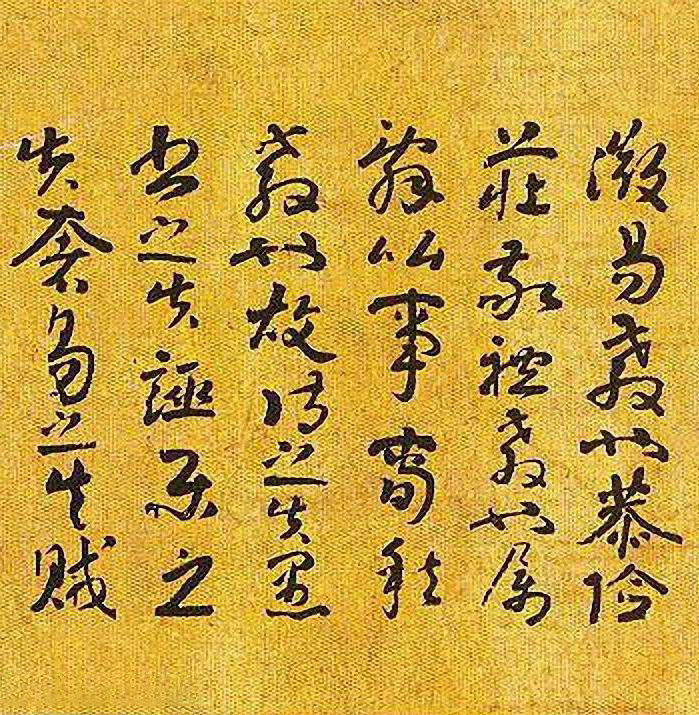 微易教也恭儉
莊敬禮教也属
辭比事春秋
教也故詩之失愚
書之失誣樂之
失奢易之失賊